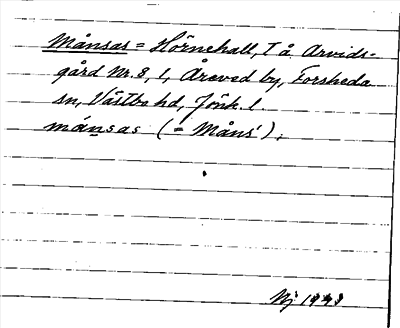 Månsas = Hörnehall, T å Arvids-
gård Nr. 8, 1, Åreved by, Forsheda
sn, Västbo hd, Jönk. l.
månsas (= Måns').
Nj 1943